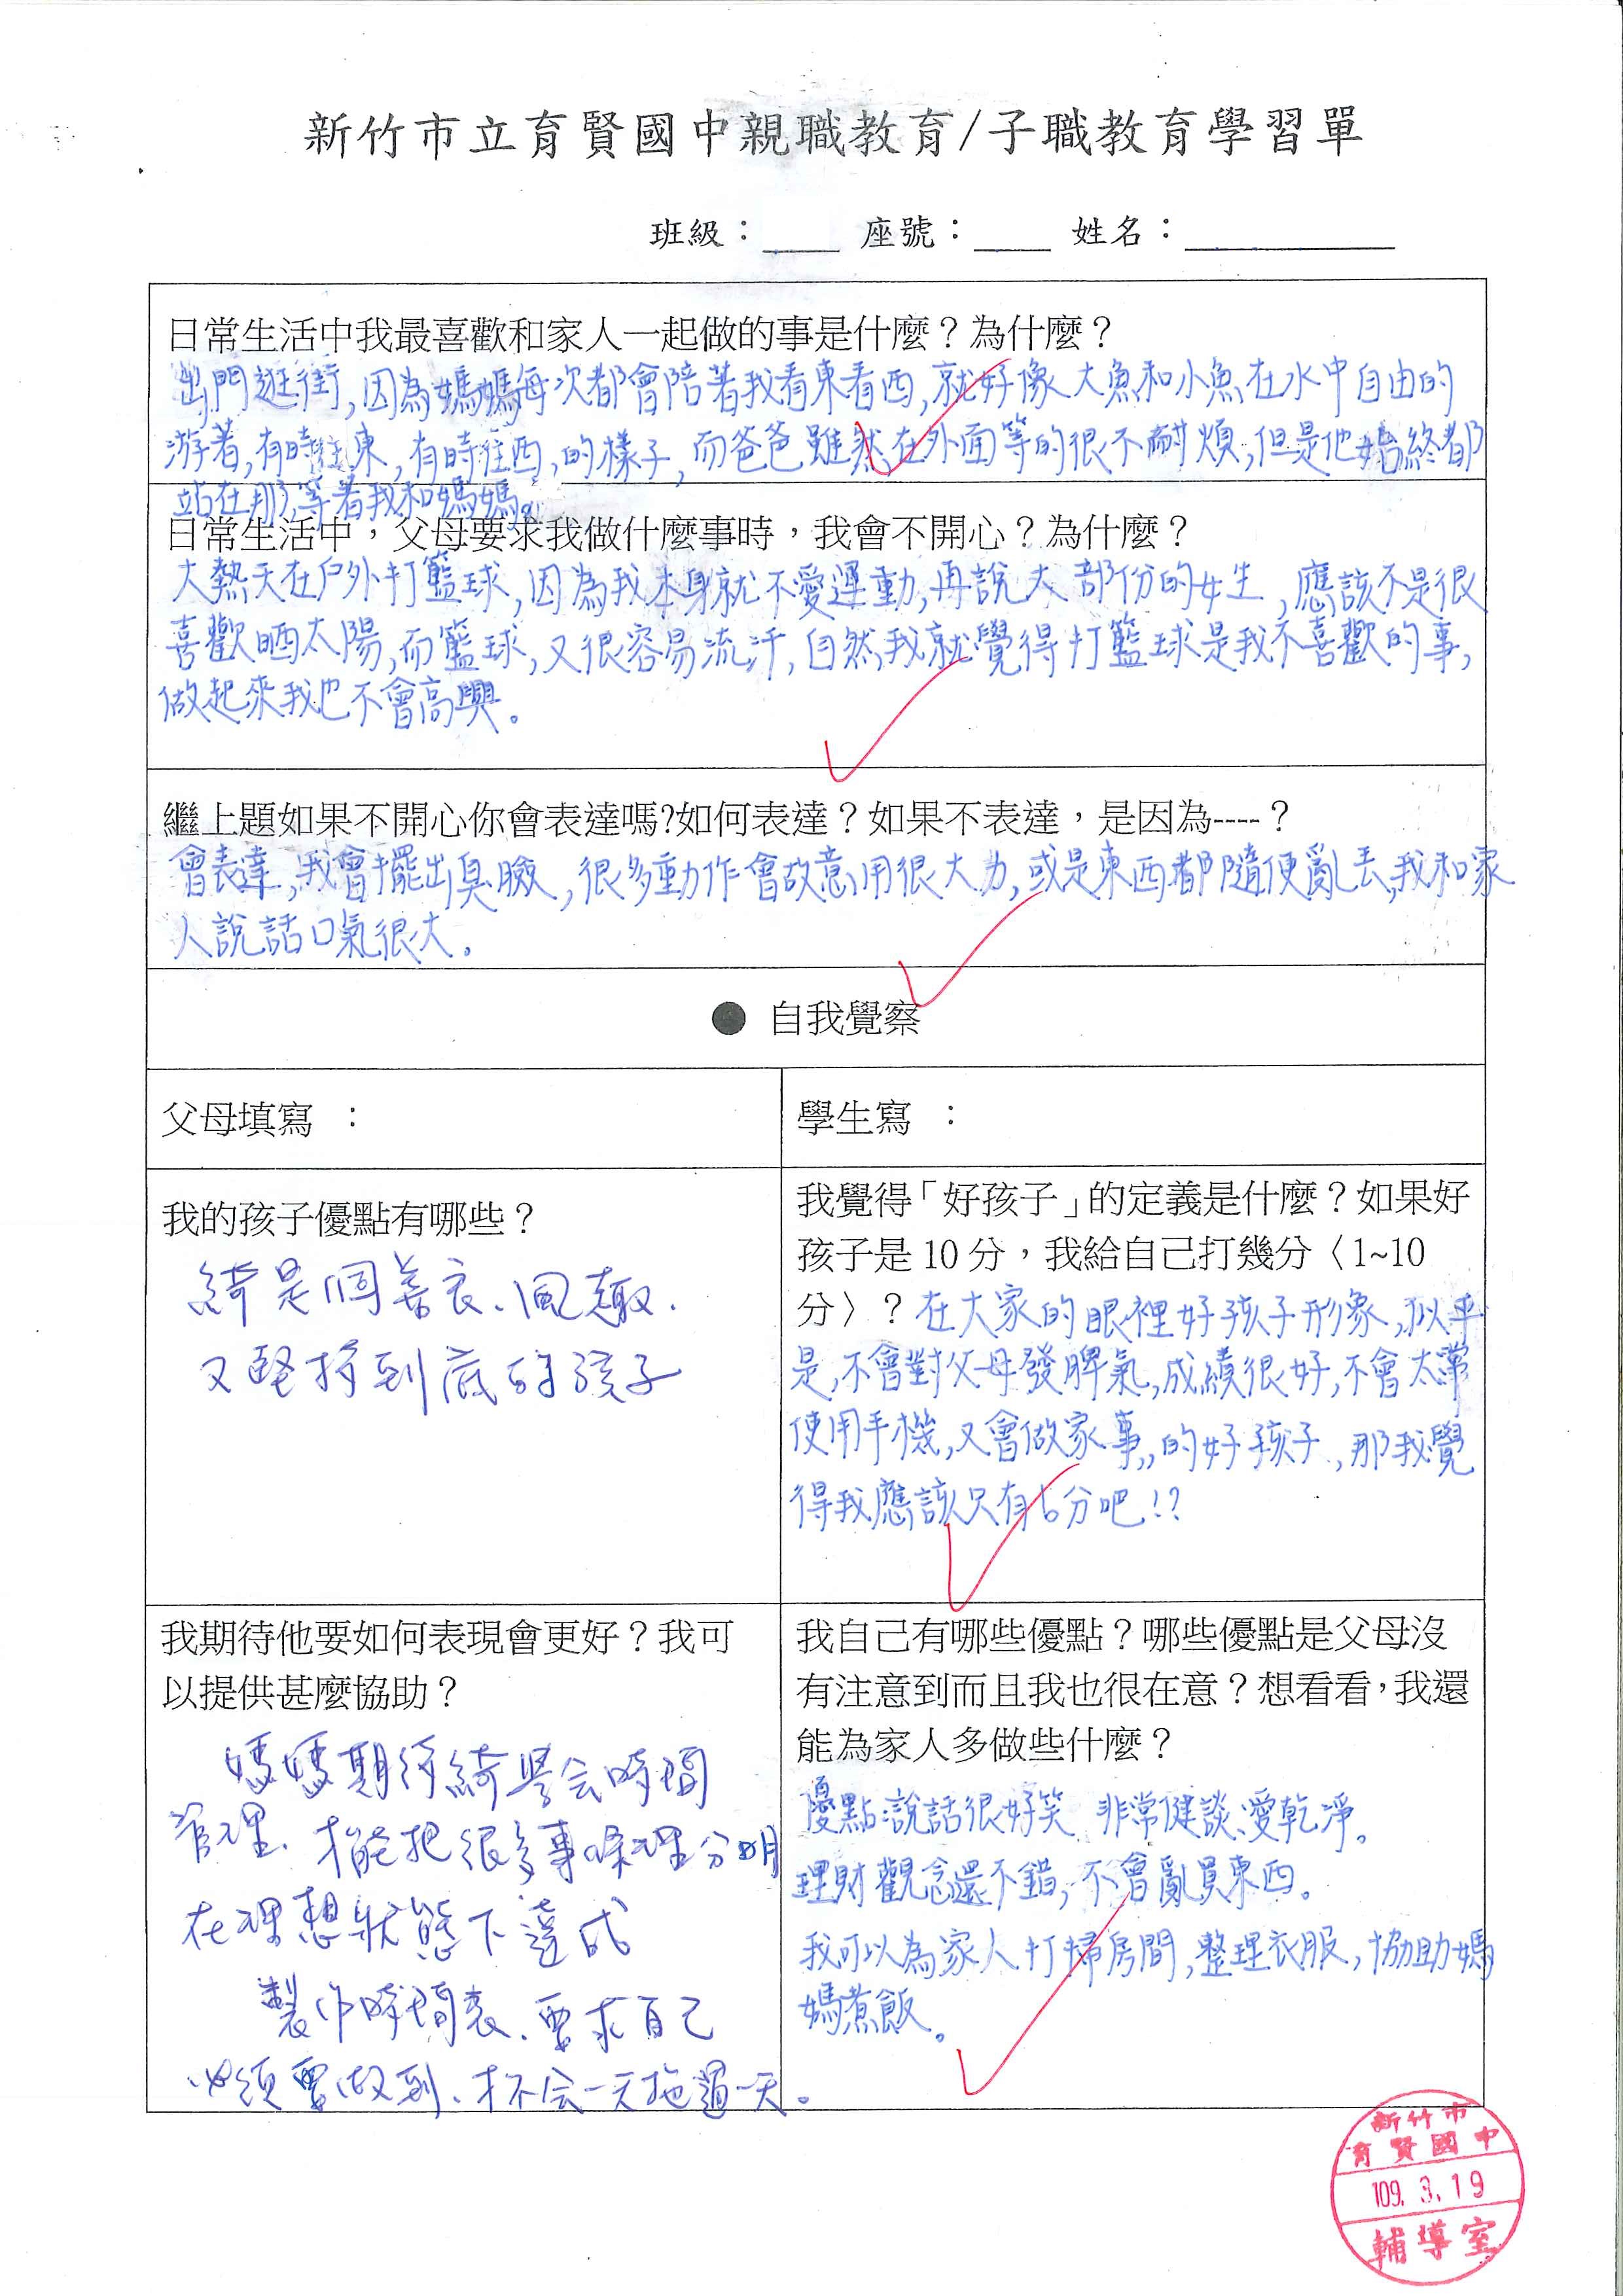 新竹市立育賢國中親職教育/子職教育學習單
班級：____ 座號：____ 姓名：___________
日常生活中我最喜歡和家人一起做的事是什麼？為什麼？
出門逛街，因為媽媽每次都會陪著我看東看西，就好像大魚和小魚在水中自由的
游著，有時往東，有時往西，的樣子，而爸爸雖然在外面等的很不耐煩，但是他始終都
站在那等著我和媽媽。
日常生活中，父母要求我做什麼事時，我會不開心？為什麼？
大熱天在戶外打籃球，因為我本身就不愛運動，再說大部份的女生，應該不是很
喜歡晒太陽，而籃球，又很容易流汗，自然我就覺得打籃球是我不喜歡的事，
做起來我也不會高興。
繼上題如果不開心你會表達嗎?如何表達？如果不表達，是因為----？
會表達，我會擺出臭臉，很多動作會故意用很大力，或是東西都隨便亂丟，我和家
人說話口氣很大。
● 自我覺察
父母填寫 ：
學生寫 ：
我的孩子優點有哪些？
綺是個善良、風趣、
又堅持到底的孩子
我覺得「好孩子」的定義是什麼？如果好
孩子是 10 分，我給自己打幾分〈1~10
分〉？在大家的眼裡好孩子形象，似乎
是，不會對父母發脾氣，成績很好，不會太常
使用手機，又會做家事，的好孩子，那我覺
得我應該只有6分吧！？
我期待他要如何表現會更好？我可
以提供甚麼協助？
媽媽期待綺學会時間
管理、才能把很多事條理分明
在理想狀態下達成
製作時間表、要求自己
必須要做到、才不会一天拖過一天。
我自己有哪些優點？哪些優點是父母沒
有注意到而且我也很在意？想看看，我還
能為家人多做些什麼？
優點：說話很好笑 非常健談、愛乾淨。
理財觀念還不錯，不會亂買東西。
我可以為家人打掃房間，整理衣服，協助媽
媽煮飯。
新竹市
育賢國中
109.3.19
輔導室